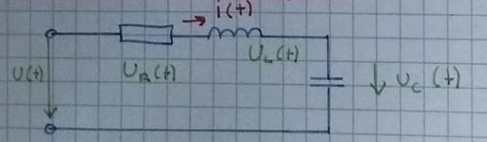 i(t)
U(t)
U_R(t)
U_L(t)
U_C(t)